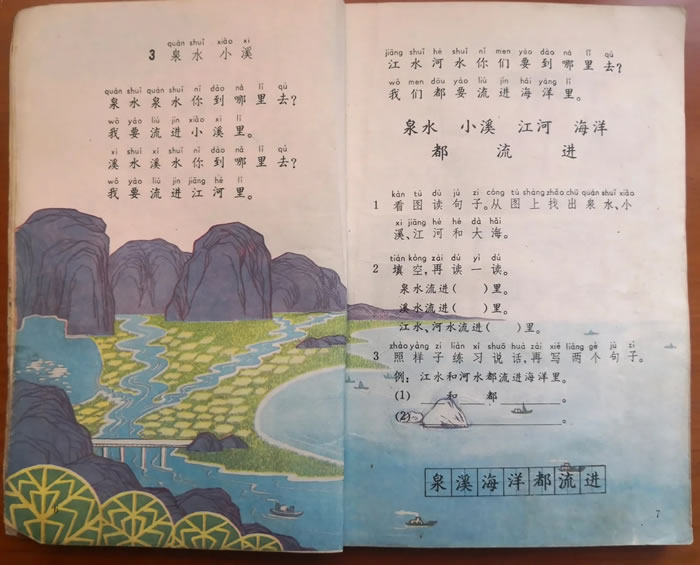 quán shuǐ xiǎo xī
3 泉水小溪
quán shuǐ quán shuǐ nǐ dào nǎ lǐ qù
泉水泉水你到哪里去？
wǒ yào liú jìn xiǎo xī lǐ
我要流进小溪里。
xī shuǐ xī shuǐ nǐ dào nǎ lǐ qù
溪水溪水你到哪里去？
wǒ yào liú jìn jiāng hé lǐ
我要流进江河里。
6
jiāng shuǐ hé shuǐ nǐ men yào dào nǎ lǐ qù
江水河水你们要到哪里去？
wǒ men dōu yào liú jìn hǎi yáng lǐ
我们都要流进海洋里。
泉水 小溪 江河 海洋
都 流 进
kàn tú dú jù zi cóng tú shàng zhǎo chū quán shuǐ xiǎo
1 看图读句子。从图上找出泉水、小
xī jiāng hé hé dà hǎi
溪、江河和大海。
tián kòng zài dú yī dú
2 填空，再读一读。
泉水流进（ ）里。
溪水流进（ ）里。
江水、河水流进（ ）里。
zhào yàng zi liàn xí shuō huà zài xiě liǎng gè jù zi
3 照样子练习说话，再写两个句子。
例：江水和河水都流进海洋里。
(1) ____和____都____________。
(2)____________________。
泉溪海洋都流进
7